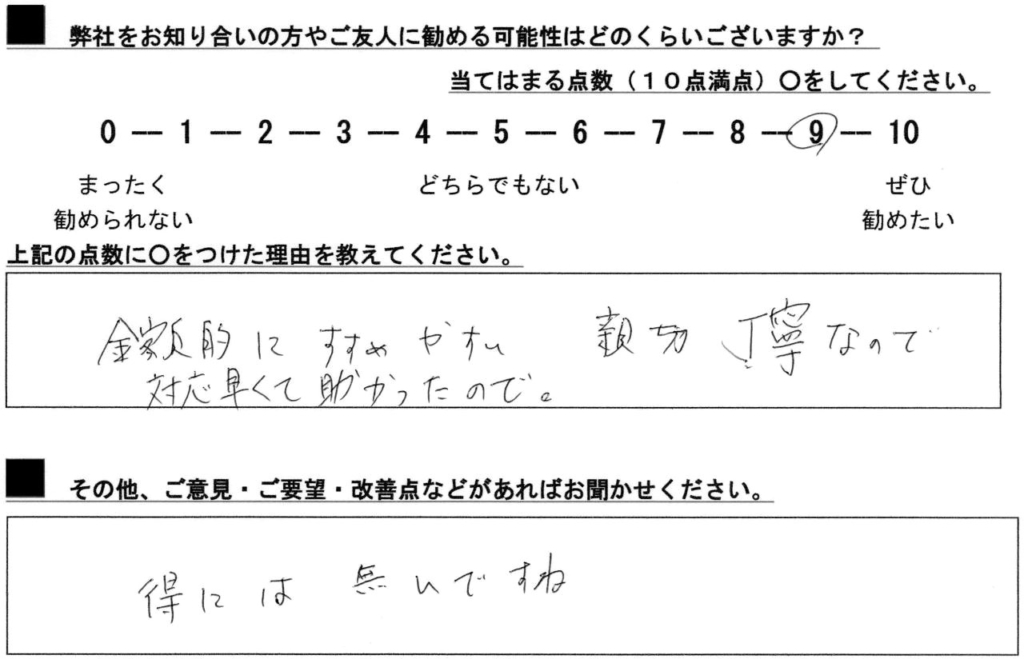 弊社をお知り合いの方やご友人に勧める可能性はどのくらいございますか？
当てはまる点数（１０点満点）〇をしてください。
0 ― 1 ― 2 ― 3 ― 4 ― 5 ― 6 ― 7 ― 8 ― 9 ― 10
まったく どちらでもない ぜひ
勧められない 勧めたい
上記の点数に〇をつけた理由を教えてください。
金額的に すすめやすい 親切 丁寧なので
対応早くて助かったので。
その他、ご意見・ご要望・改善点などがあればお聞かせください。
得には 無いですね